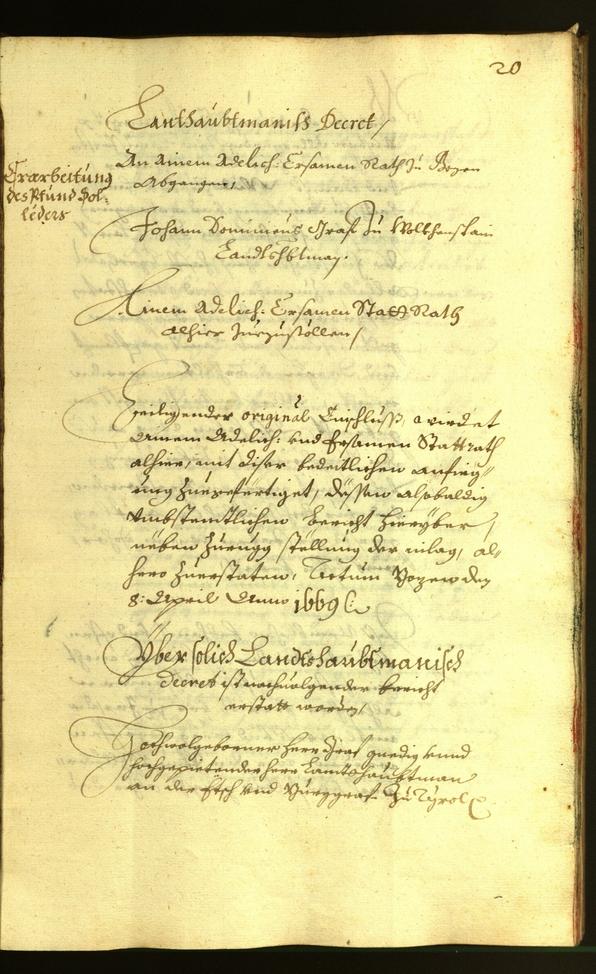 20
Landtshaubtmanisch Decret,
Erarbeitung
des Pfund Sol-
leders
An Ainem Adelich: Ersamen Rath zu Bozen
Abgangen,
Johann Dominicus Graf zu Wolkhenstain
Landtshbtman.
Ainem Adelich: Ersamen Statt Rath
alhier zuezustöllen,
Beiligender original Einschluss, wirdet
ainem Adelich: und Ersamen Stattrath
alhier, mit diser bedeitlichen anfieg-
ung zuegefertiget, dessen alsobaldig
umbstendtlichen bericht hieryber,
neben zurugg stellung der inlag, al-
hero zuerstaten, Actum Bozen den
8: April Anno 1669
Yber solich Landtshaubtmanisch
decret ist nachvolgender bericht
erstatt worden,
Hochwolgeborner Herr Graf gnedig und
hochgepietender Herr Landtshauptman
an der Etsch und Burggraf zu Tyrol